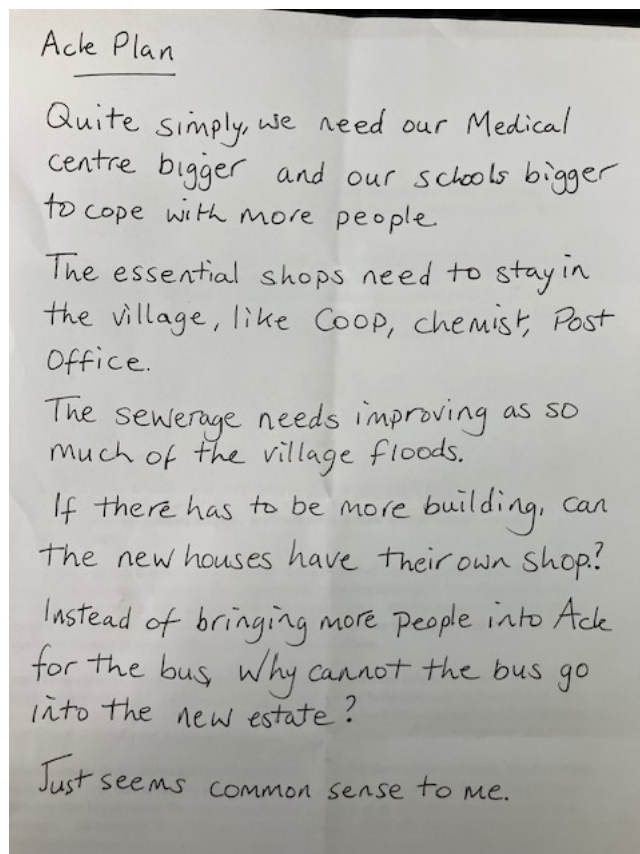 Acle Plan
Quite simply, we need our Medical
centre bigger and our schools bigger
to cope with more people
The essential shops need to stay in
the village, like Coop, chemist, Post
Office.
The sewerage needs improving as so
much of the village floods.
If there has to be more building, can
the new houses have their own shop?
Instead of bringing more people into Acle
for the bus, Why cannot the bus go
into the new estate?
Just seems common sense to me.